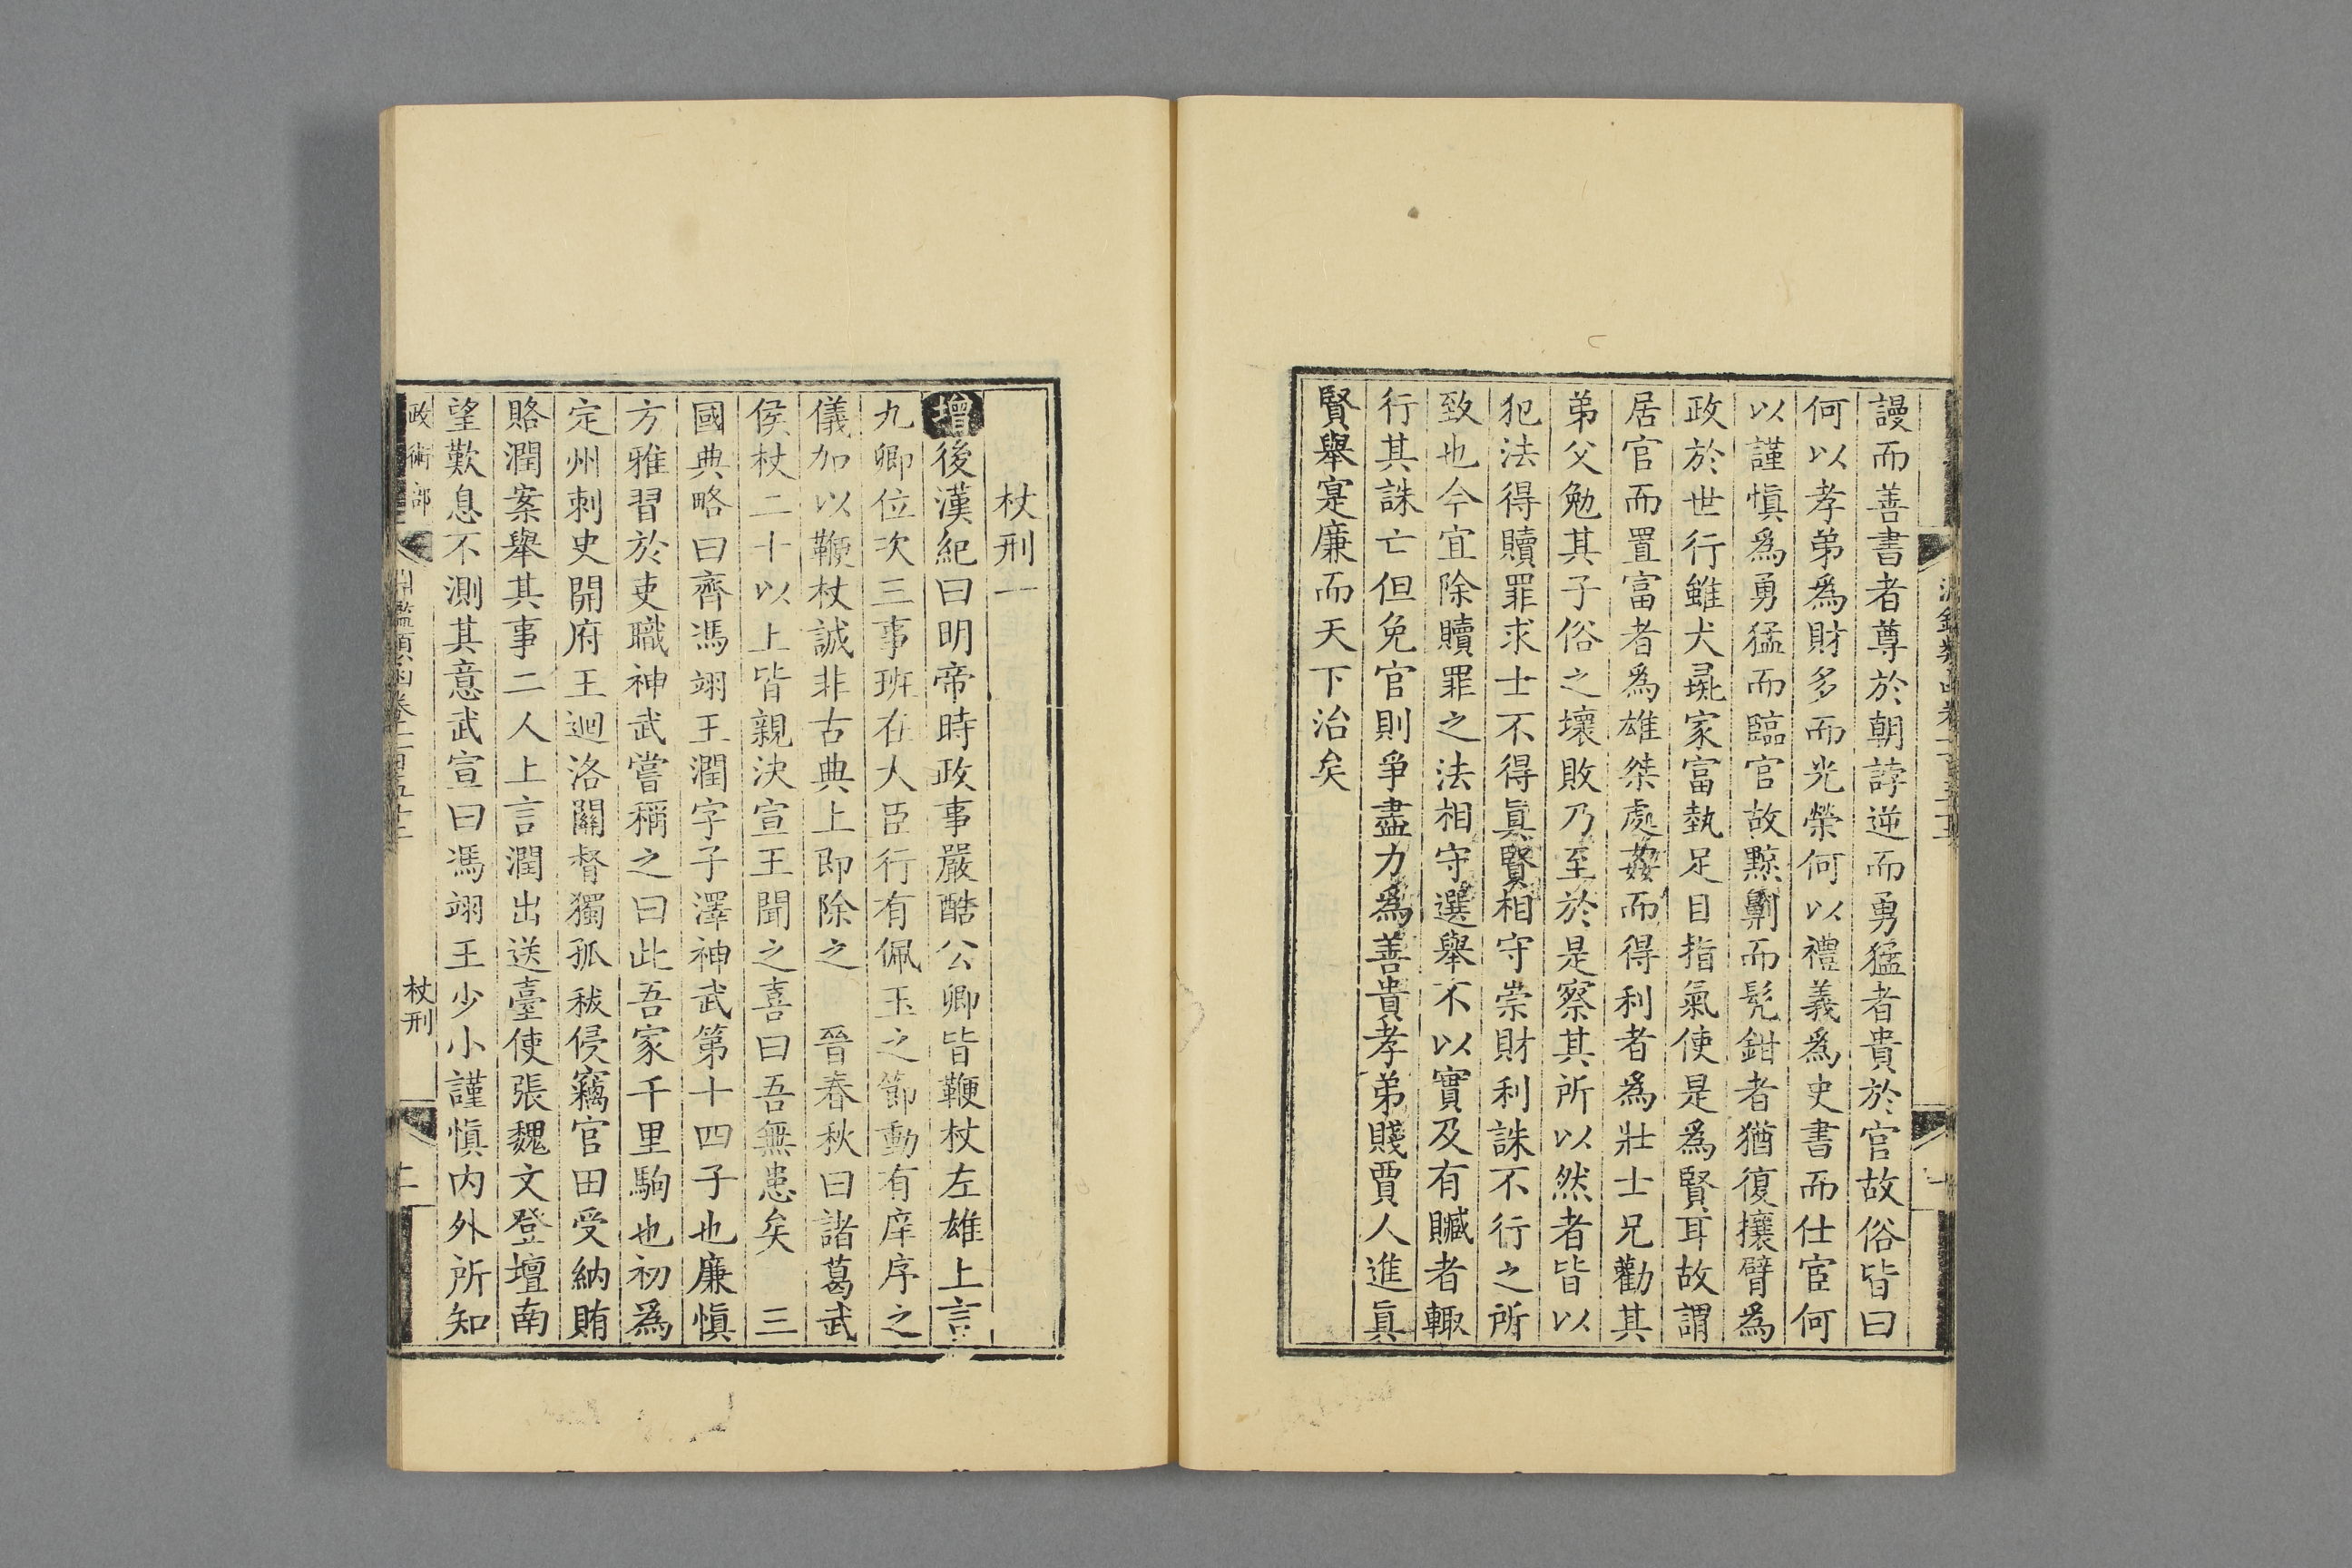 謾而善書者尊於朝誖逆而勇猛者貴於官故俗皆曰
何以孝弟爲財多而光榮何以禮義爲史書而仕宦何
以謹慎爲勇猛而臨官故黥劓而髡鉗者猶復攘臂爲
政於世行雖犬彘家富埶足目指氣使是爲賢耳故謂
居官而置富者爲雄桀處姦而得利者爲壯士兄勸其
弟父勉其子俗之壞敗乃至於是察其所以然者皆以
犯法得贖罪求士不得眞賢相守崇財利誅不行之所
致也今宜除贖罪之法相守選舉不以實及有贓者輙
行其誅亡但免官則爭盡力爲善貴孝弟賤賈人進眞
賢舉寔廉而天下治矣
杖刑一
增後漢紀曰明帝時政事嚴酷公卿皆鞭杖左雄上言
九卿位次三事班在大臣行有佩玉之節動有庠序之
儀加以鞭杖誠非古典上即除之　晉春秋曰諸葛武
侯杖二十以上皆親決宣王聞之喜曰吾無患矣　三
國典略曰齊馮翊王潤字子澤神武第十四子也廉慎
方雅習於吏職神武嘗稱之曰此吾家千里駒也初爲
定州刺史開府王迴洛關督獨孤秡侵竊官田受納賄
賂潤案舉其事二人上言潤出送臺使張魏文登壇南
望歎息不測其意武宣曰馮翊王少小謹慎内外所知
政術部
杖刑